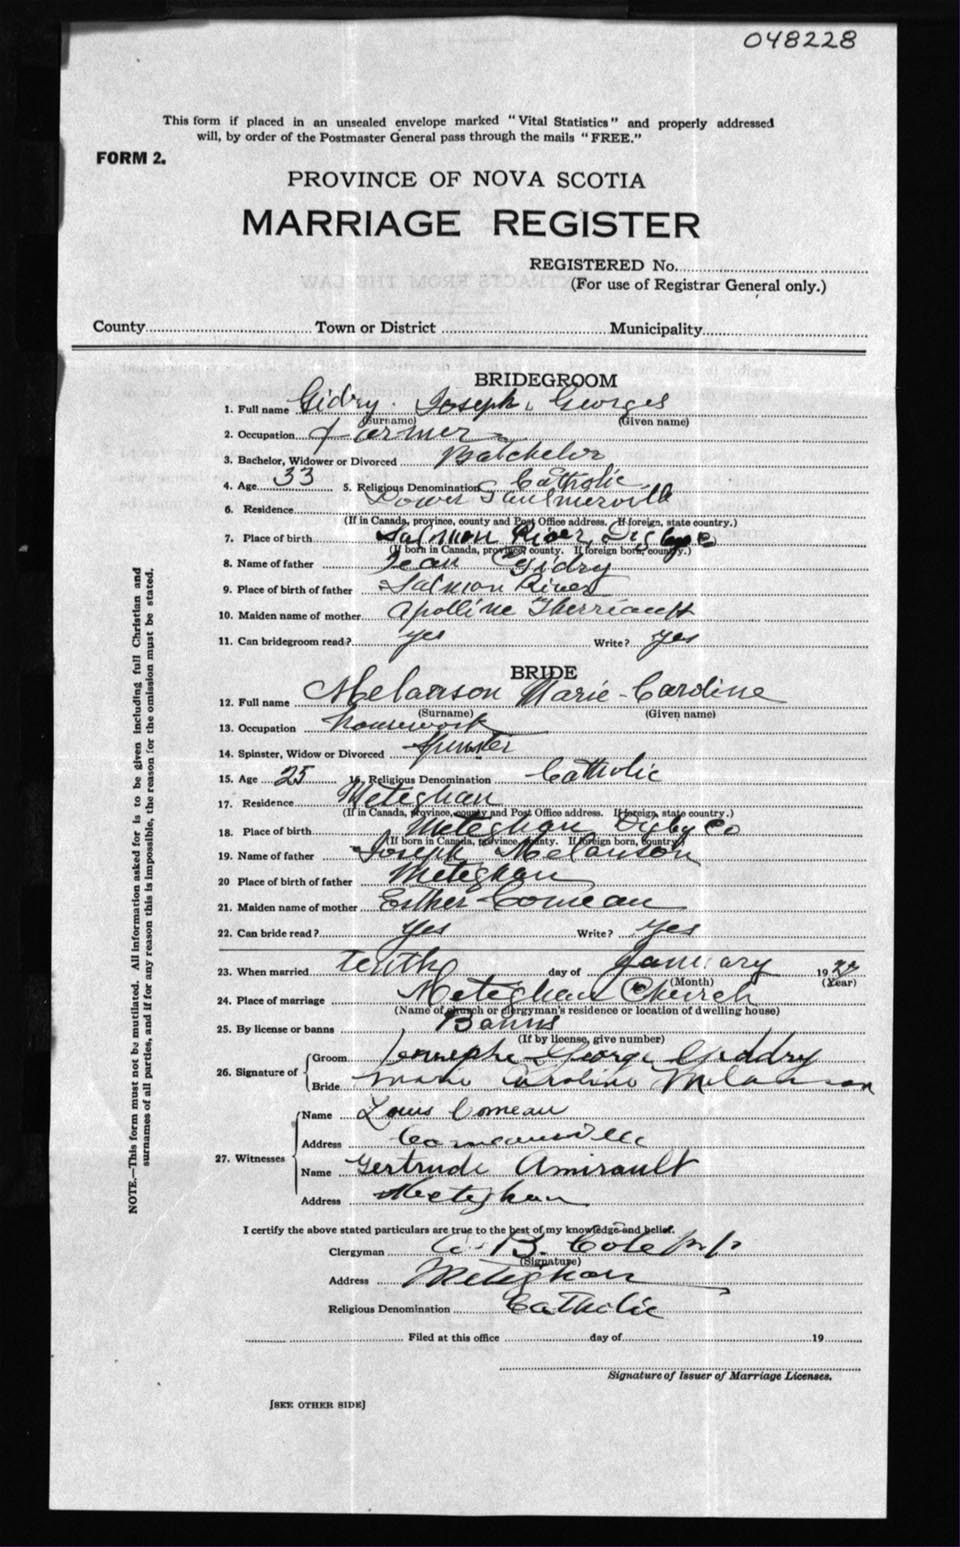 048228
This form if placed in an unsealed envelope marked "Vital Statistics" and properly addressed
will, by order of the Postmaster General pass through the mails "FREE."
FORM 2.
PROVINCE OF NOVA SCOTIA
MARRIAGE REGISTER
REGISTERED No.
(For use of Registrar General only.)
County Town or District Municipality
BRIDEGROOM
1. Full name Gidry Joseph Georges
(Surname) (Given name)
2. Occupation farmer
3. Bachelor, Widower or Divorced Batchelor
4. Age 33 5. Religious Denomination Catholic
6. Residence Lower Saulnierville
(If in Canada, province, county and Post Office address. If foreign, state country.)
7. Place of birth Salmon River, Digby Co
(If born in Canada, province county. If foreign born, country.)
8. Name of father Jean Gidry
9. Place of birth of father Salmon River
10. Maiden name of mother Apolline Therriault
11. Can bridegroom read? yes Write? yes
BRIDE
12. Full name Melanson Marie-Caroline
(Surname) (Given name)
13. Occupation housework
14. Spinster, Widow or Divorced Spinster
15. Age 25 16. Religious Denomination Catholic
17. Residence Meteghan
(If in Canada, province, county and Post Office address. If foreign, state country.)
18. Place of birth Meteghan Digby Co
(If born in Canada, province county. If foreign born, country)
19. Name of father Joseph Melanson
20 Place of birth of father Meteghan
21. Maiden name of mother Esther Comeau
22. Can bride read? Yes Write? Yes
23. When married tenth day of January 19
(Month) (Year)
24. Place of marriage Meteghan Church
(Name of church or clergyman's residence or location of dwelling house)
25. By license or banns Banns
(If by license, give number)
26. Signature of Groom George
Bride Marie Caroline Melanson
27. Witnesses Name Louis Comeau
Address Comeauville
Name Gertrude Amirault
Address Meteghan
I certify the above stated particulars are true to the best of my knowledge and belief.
Clergyman B. Cote p.p.
(Signature)
Address Meteghan
Religious Denomination Catholic
Filed at this office day of 19
Signature of Issuer of Marriage Licenses.
[SEE OTHER SIDE]
NOTE.—This form must not be mutilated. All information asked for is to be given including full Christian and
surnames of all parties, and if for any reason this is impossible, the reason for the omission must be stated.